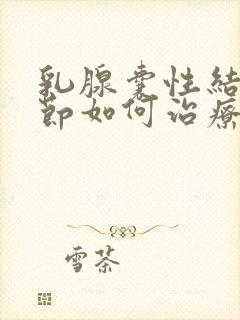 乳腺囊性結
節如何治療
雪茶